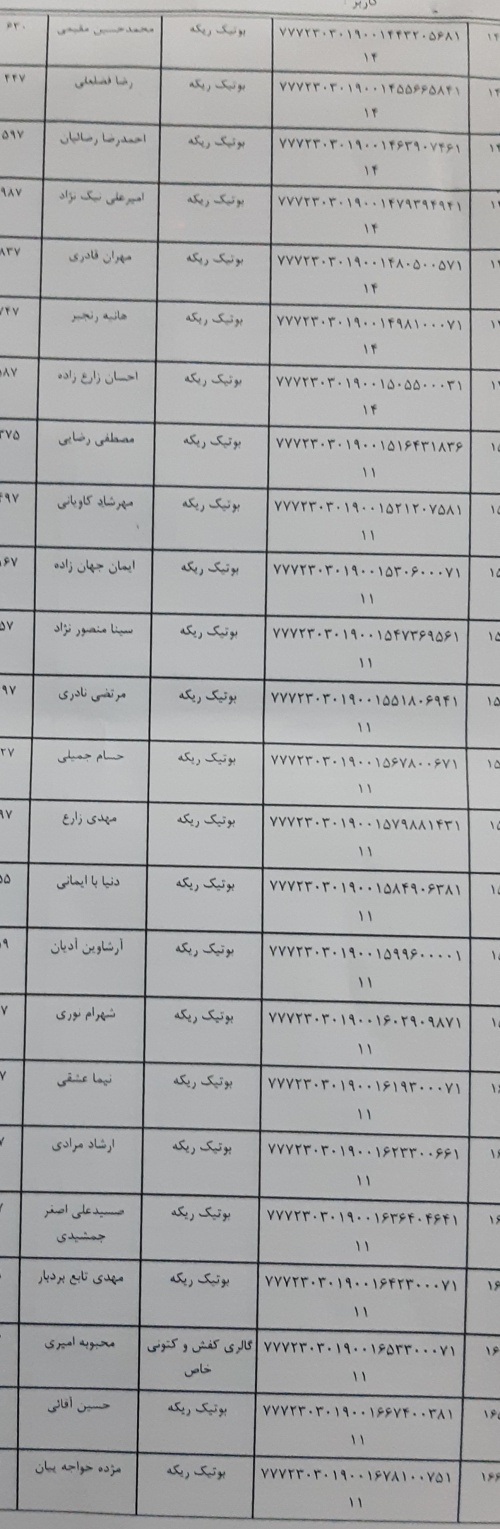 کاربر
۶۳۰ محمدحسین مقیمی بوتیک ریکه ۷۷۷۲۳۰۳۰۱۹۰۰۱۴۴۳۲۰۵۶۸۱ ۱۴
۱۴
۴۴۷ رضا فضلعلی بوتیک ریکه ۷۷۷۲۳۰۳۰۱۹۰۰۱۴۵۵۶۶۵۸۴۱ ۱۴
۱۴
۵۹۷ احمدرضا رضائیان بوتیک ریکه ۷۷۷۲۳۰۳۰۱۹۰۰۱۴۶۳۹۰۷۴۶۱ ۱۴
۱۴
۹۸۷ امیرعلی نیک نژاد بوتیک ریکه ۷۷۷۲۳۰۳۰۱۹۰۰۱۴۷۹۳۹۴۹۴۱
۱۴
۸۳۷ مهران قادری بوتیک ریکه ۷۷۷۲۳۰۳۰۱۹۰۰۱۴۸۰۵۰۰۵۷۱
۱۴
۷۴۷ هانیه رنجبر بوتیک ریکه ۷۷۷۲۳۰۳۰۱۹۰۰۱۴۹۸۱۰۰۰۷۱
۱۴
۸۷ احسان زارع زاده بوتیک ریکه ۷۷۷۲۳۰۳۰۱۹۰۰۱۵۰۵۵۰۰۰۳۱
۱۴
۳۷۵ مصطفی رضایی بوتیک ریکه ۷۷۷۲۳۰۳۰۱۹۰۰۱۵۱۶۴۳۱۸۳۶ ۱۵
۱۱
۴۹۷ مهرشاد کاویانی بوتیک ریکه ۷۷۷۲۳۰۳۰۱۹۰۰۱۵۲۱۲۰۷۵۸۱ ۱۵
۱۱
۶۷ ایمان جهان زاده بوتیک ریکه ۷۷۷۲۳۰۳۰۱۹۰۰۱۵۳۰۶۰۰۰۷۱ ۱۵
۱۱
۵۷ سینا منصور نژاد بوتیک ریکه ۷۷۷۲۳۰۳۰۱۹۰۰۱۵۴۷۳۶۹۵۶۱ ۱۵
۱۱
۹۷ مرتضی نادری بوتیک ریکه ۷۷۷۲۳۰۳۰۱۹۰۰۱۵۵۱۸۰۶۹۴۱ ۱۵
۱۱
۲۷ حسام جمیلی بوتیک ریکه ۷۷۷۲۳۰۳۰۱۹۰۰۱۵۶۷۸۰۰۶۷۱ ۱۵
۱۱
۹۷ مهدی زارع بوتیک ریکه ۷۷۷۲۳۰۳۰۱۹۰۰۱۵۷۹۸۸۱۴۳۱ ۱۵
۱۱
۵۵ دنیا با ایمانی بوتیک ریکه ۷۷۷۲۳۰۳۰۱۹۰۰۱۵۸۴۹۰۶۳۸۱ ۱۵
۱۱
۱۹ آرشاوین آدیان بوتیک ریکه ۷۷۷۲۳۰۳۰۱۹۰۰۱۵۹۹۶۰۰۰۰۱ ۱۵
۱۱
۷ شهرام نوری بوتیک ریکه ۷۷۷۲۳۰۳۰۱۹۰۰۱۶۰۲۹۰۹۸۷۱ ۱۶
۱۱
۷ نیما عشقی بوتیک ریکه ۷۷۷۲۳۰۳۰۱۹۰۰۱۶۱۹۳۰۰۰۷۱ ۱۶
۱۱
۷ ارشاد مرادی بوتیک ریکه ۷۷۷۲۳۰۳۰۱۹۰۰۱۶۲۳۳۰۰۶۶۱ ۱۶
۱۱
صسیدعلی اصغر بوتیک ریکه ۷۷۷۲۳۰۳۰۱۹۰۰۱۶۳۶۴۰۴۶۴۱ ۱۶
جمشیدی ۱۱
مهدی تابع بردبار بوتیک ریکه ۷۷۷۲۳۰۳۰۱۹۰۰۱۶۴۲۳۰۰۰۷۱ ۱۶
۱۱
محبوبه امیری گالری کفش و کتونی ۷۷۷۲۳۰۳۰۱۹۰۰۱۶۵۳۳۰۰۰۷۱ ۱۶
خاص ۱۱
حسین آقائی بوتیک ریکه ۷۷۷۲۳۰۳۰۱۹۰۰۱۶۶۷۴۰۰۳۸۱ ۱۶۵
۱۱
مژده خواجه بیان بوتیک ریکه ۷۷۷۲۳۰۳۰۱۹۰۰۱۶۷۸۱۰۰۷۵۱ ۱۶۶
۱۱